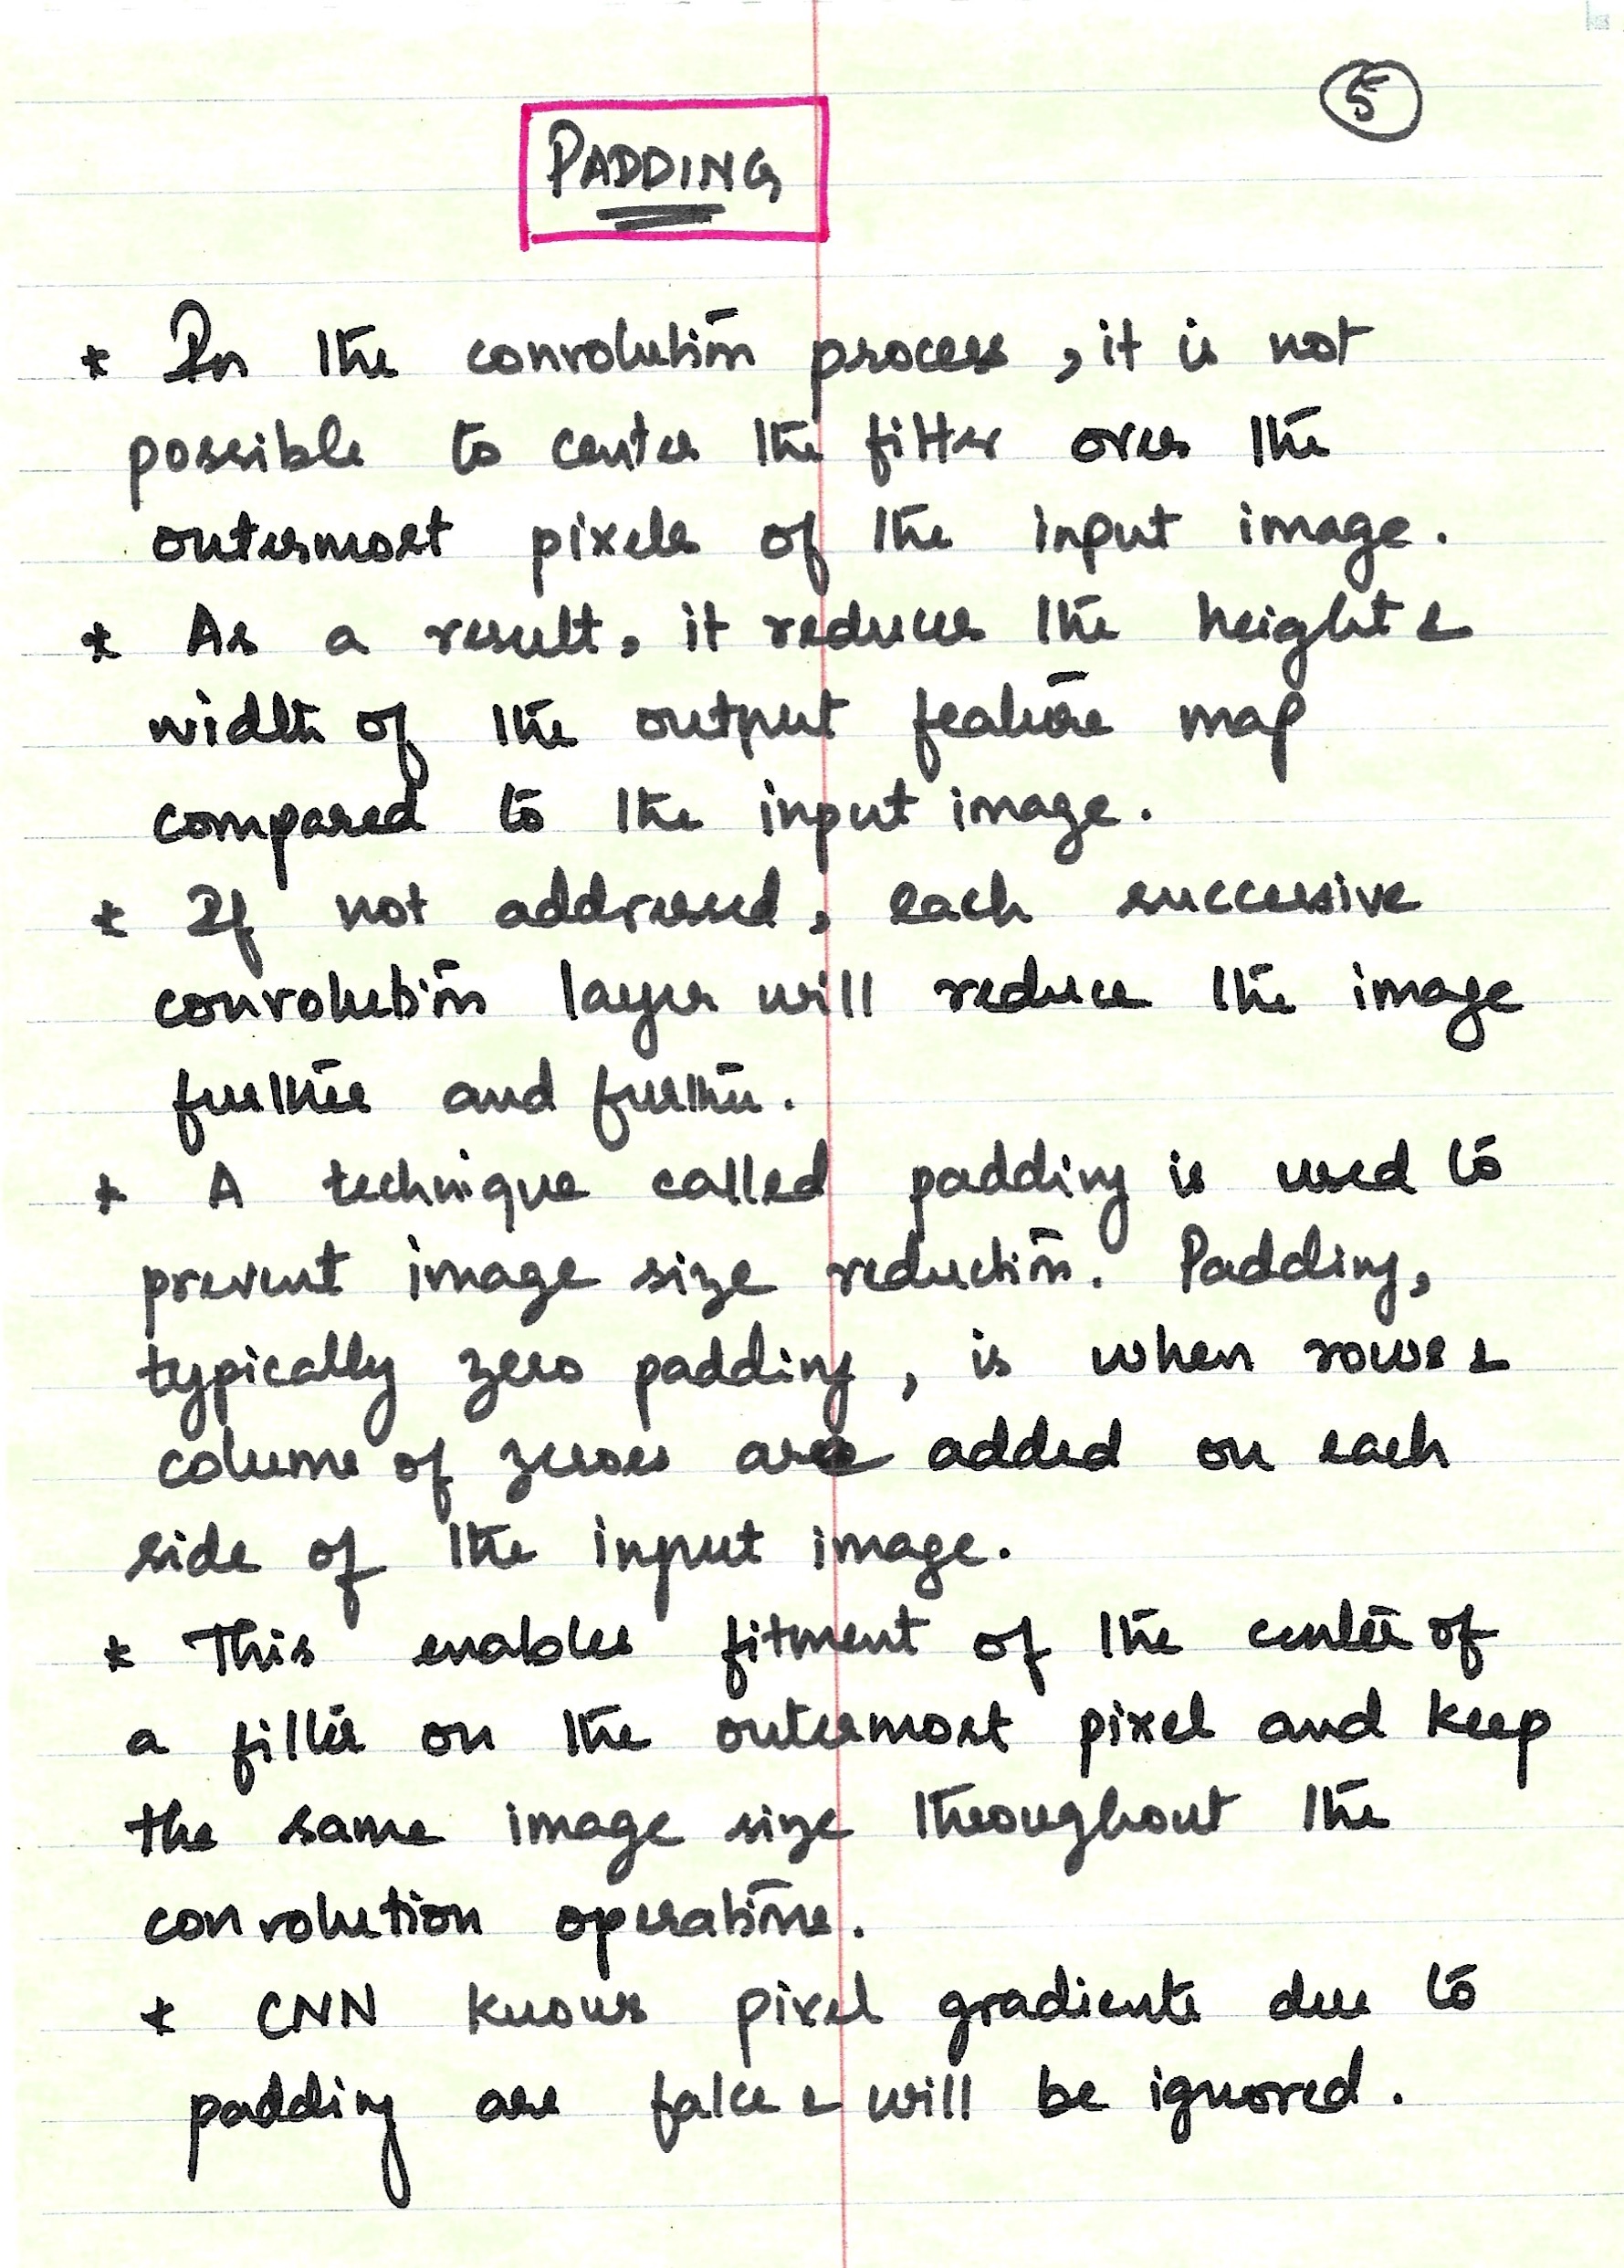 5
PADDING
* In the convolution process, it is not
possible to center the filter over the
outermost pixels of the input image.
* As a result, it reduces the height &
width of the output feature map
compared to the input image.
* If not addressed, each successive
convolution layer will reduce the image
further and further.
* A technique called padding is used to
prevent image size reduction. Padding,
typically zero padding, is when rows &
colums of zeroes are added on each
side of the input image.
* This enables fitment of the center of
a filter on the outermost pixel and keep
the same image size throughout the
convolution operations.
* CNN knows pixel gradients due to
padding are false & will be ignored.